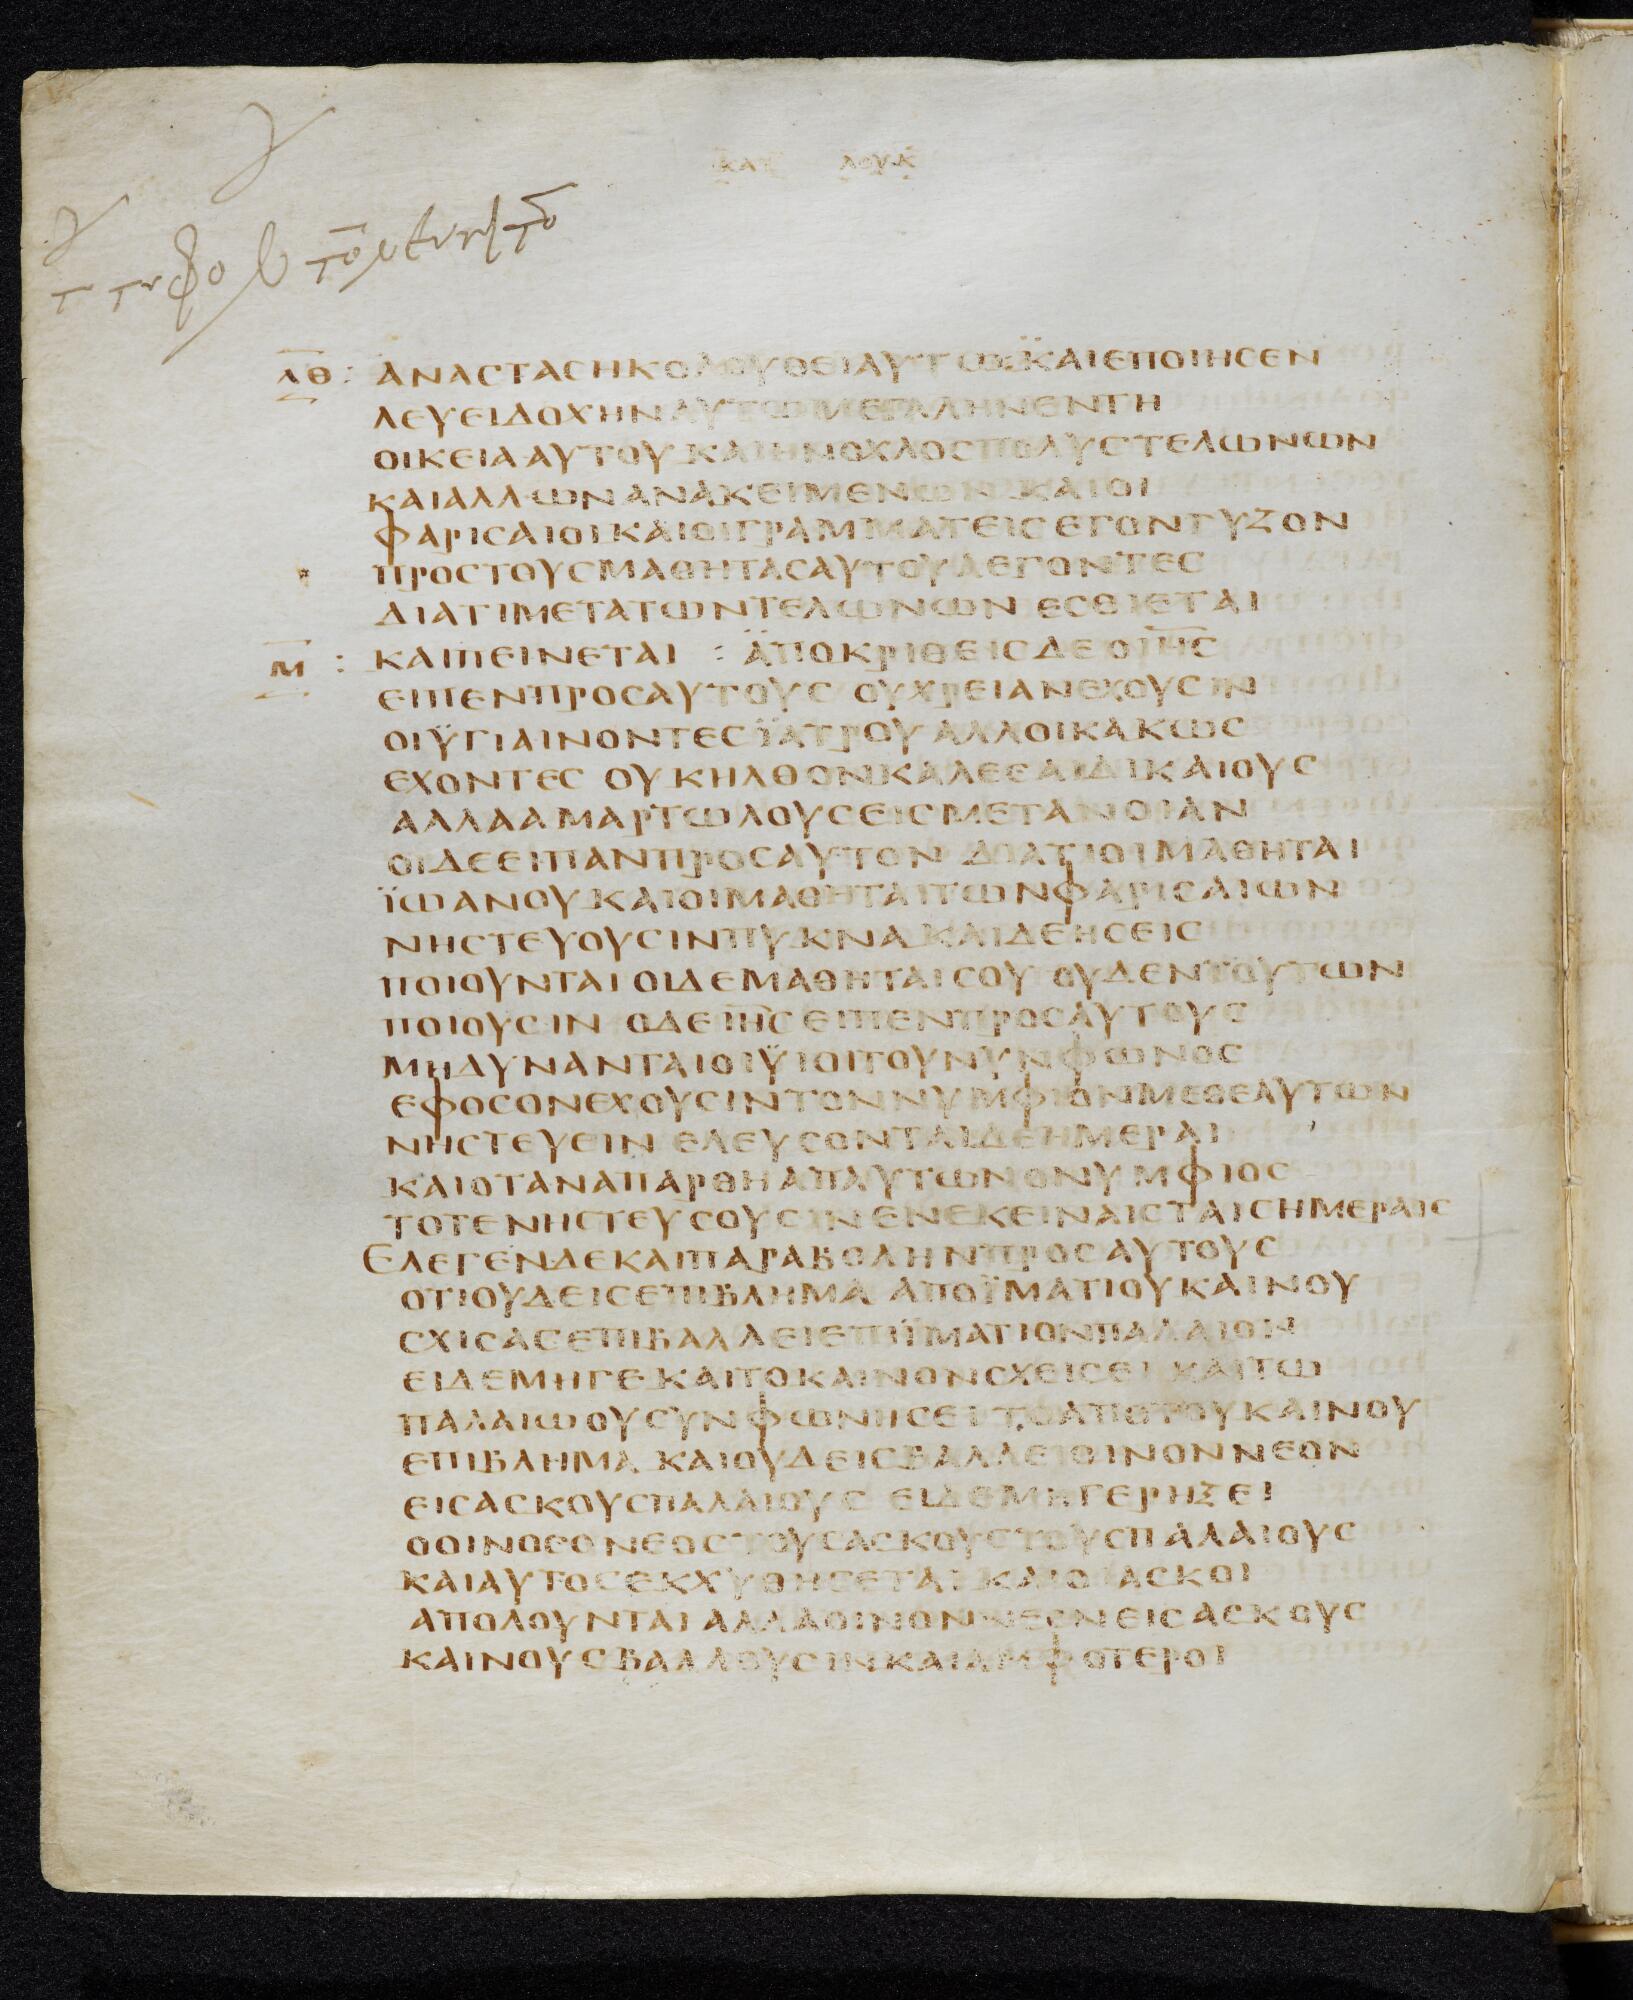 ΚΑΤ ΛΟΥΚ
ΛΘ : ΑΝΑСΤΑСΗΚΟΛΟΥΘΕΙΑΥΤΩ:ΚΑΙΕΠΟΙΗСΕΝ
ΛΕΥΕΙΔΟΧΗΝΑΥΤΩΜΕΓΑΛΗΝΕΝΤΗ
ΟΙΚΕΙΑΑΥΤΟΥΚΑΙΗΝΟΧΛΟСΠΟΛΥСΤΕΛΩΝΩΝ
ΚΑΙΑΛΛΩΝΑΝΑΚΕΙΜΕΝΩΝ ΚΑΙΟΙ
ΦΑΡΙСΑΙΟΙΚΑΙΟΙΓΡΑΜΜΑΤΕΙСΕΓΟΝΓΥΖΟΝ
ΠΡΟСΤΟΥСΜΑΘΗΤΑСΑΥΤΟΥΛΕΓΟΝΤΕС
ΔΙΑΤΙΜΕΤΑΤΩΝΤΕΛΩΝΩΝ ΕСΘΙΕΤΑΙ
Μ : ΚΑΙΠΕΙΝΕΤΑΙ : ΑΠΟΚΡΙΘΕΙСΔΕΟΙΗС
ΕΙΠΕΝΠΡΟСΑΥΤΟΥС ΟΥΧΡΕΙΑΝΕΧΟΥСΙΝ
ΟΙΫΓΙΑΙΝΟΝΤΕСΪΑΤΡΟΥ ΑΛΛΟΙΚΑΚΩС
ΕΧΟΝΤΕС ΟΥΚΗΛΘΟΝΚΑΛΕСΑΙΔΙΚΑΙΟΥС
ΑΛΛΑΑΜΑΡΤΩΛΟΥСΕΙСΜΕΤΑΝΟΙΑΝ
ΟΙΔΕΕΙΠΑΝΠΡΟСΑΥΤΟΝ ΔΙΑΤΙΟΙΜΑΘΗΤΑΙ
ΪΩΑΝΟΥΚΑΙΟΙΜΑΘΗΤΑΙΤΩΝΦΑΡΙСΑΙΩΝ
ΝΗСΤΕΥΟΥСΙΝΠΥΚΝΑ ΚΑΙΔΕΗСΕΙС
ΠΟΙΟΥΝΤΑΙ ΟΙΔΕΜΑΘΗΤΑΙСΟΥ ΟΥΔΕΝΤΟΥΤΩΝ
ΠΟΙΟΥСΙΝ ΟΔΕΙΗСΕΙΠΕΝΠΡΟСΑΥΤΟΥС
ΜΗΔΥΝΑΝΤΑΙΟΙΫΙΟΙΤΟΥΝΥΝΦΩΝΟС
ΕΦΟСΟΝΕΧΟΥСΙΝΤΟΝΝΥΜΦΙΟΝΜΕΘΕΑΥΤΩΝ
ΝΗСΤΕΥΕΙΝ ΕΛΕΥСΟΝΤΑΙΔΕΗΜΕΡΑΙ
ΚΑΙΟΤΑΝΑΠΑΡΘΗΑΠΑΥΤΩΝΟΝΥΜΦΙΟС
ΤΟΤΕΝΗСΤΕΥСΟΥСΙΝΕΝΕΚΕΙΝΑΙСΤΑΙСΗΜΕΡΑΙС
ΕΛΕΓΕΝΔΕΚΑΙΠΑΡΑΒΟΛΗΝΠΡΟСΑΥΤΟΥС
ΟΤΙΟΥΔΕΙСΕΠΙΒΛΗΜΑ ΑΠΟΪΜΑΤΙΟΥΚΑΙΝΟΥ
СΧΙСΑСΕΠΙΒΑΛΛΕΙΕΠΙΪΜΑΤΙΟΝΠΑΛΑΙΟΝ
ΕΙΔΕΜΗΓΕ ΚΑΙΤΟΚΑΙΝΟΝСΧΕΙСΕΙ ΚΑΙΤΩ
ΠΑΛΑΙΩΟΥСΥΝΦΩΝΗСΕΙ ΤΟΑΠΟΤΟΥΚΑΙΝΟΥ
ΕΠΙΒΛΗΜΑ ΚΑΙΟΥΔΕΙСΒΑΛΛΕΙΟΙΝΟΝΝΕΟΝ
ΕΙСΑСΚΟΥСΠΑΛΑΙΟΥС ΕΙΔΕΜΗΓΕΡΗΞΕΙ
ΟΟΙΝΟСΟΝΕΟСΤΟΥСΑСΚΟΥСΤΟΥСΠΑΛΑΙΟΥС
ΚΑΙΑΥΤΟСΕΚΧΥΘΗСΕΤΑΙ ΚΑΙΟΙΑСΚΟΙ
ΑΠΟΛΟΥΝΤΑΙ ΑΛΛΑΟΙΝΟΝΝΕΟΝΕΙСΑСΚΟΥС
ΚΑΙΝΟΥСΒΑΛΛΟΥСΙΝΚΑΙΑΜΦΟΤΕΡΟΙ